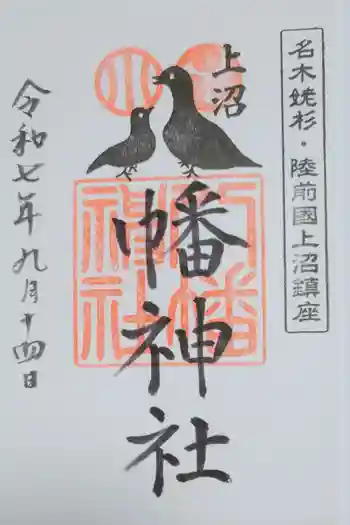 名木姥杉・陸前國上沼鎮座
上沼
幡神社
令和七年九月十四日